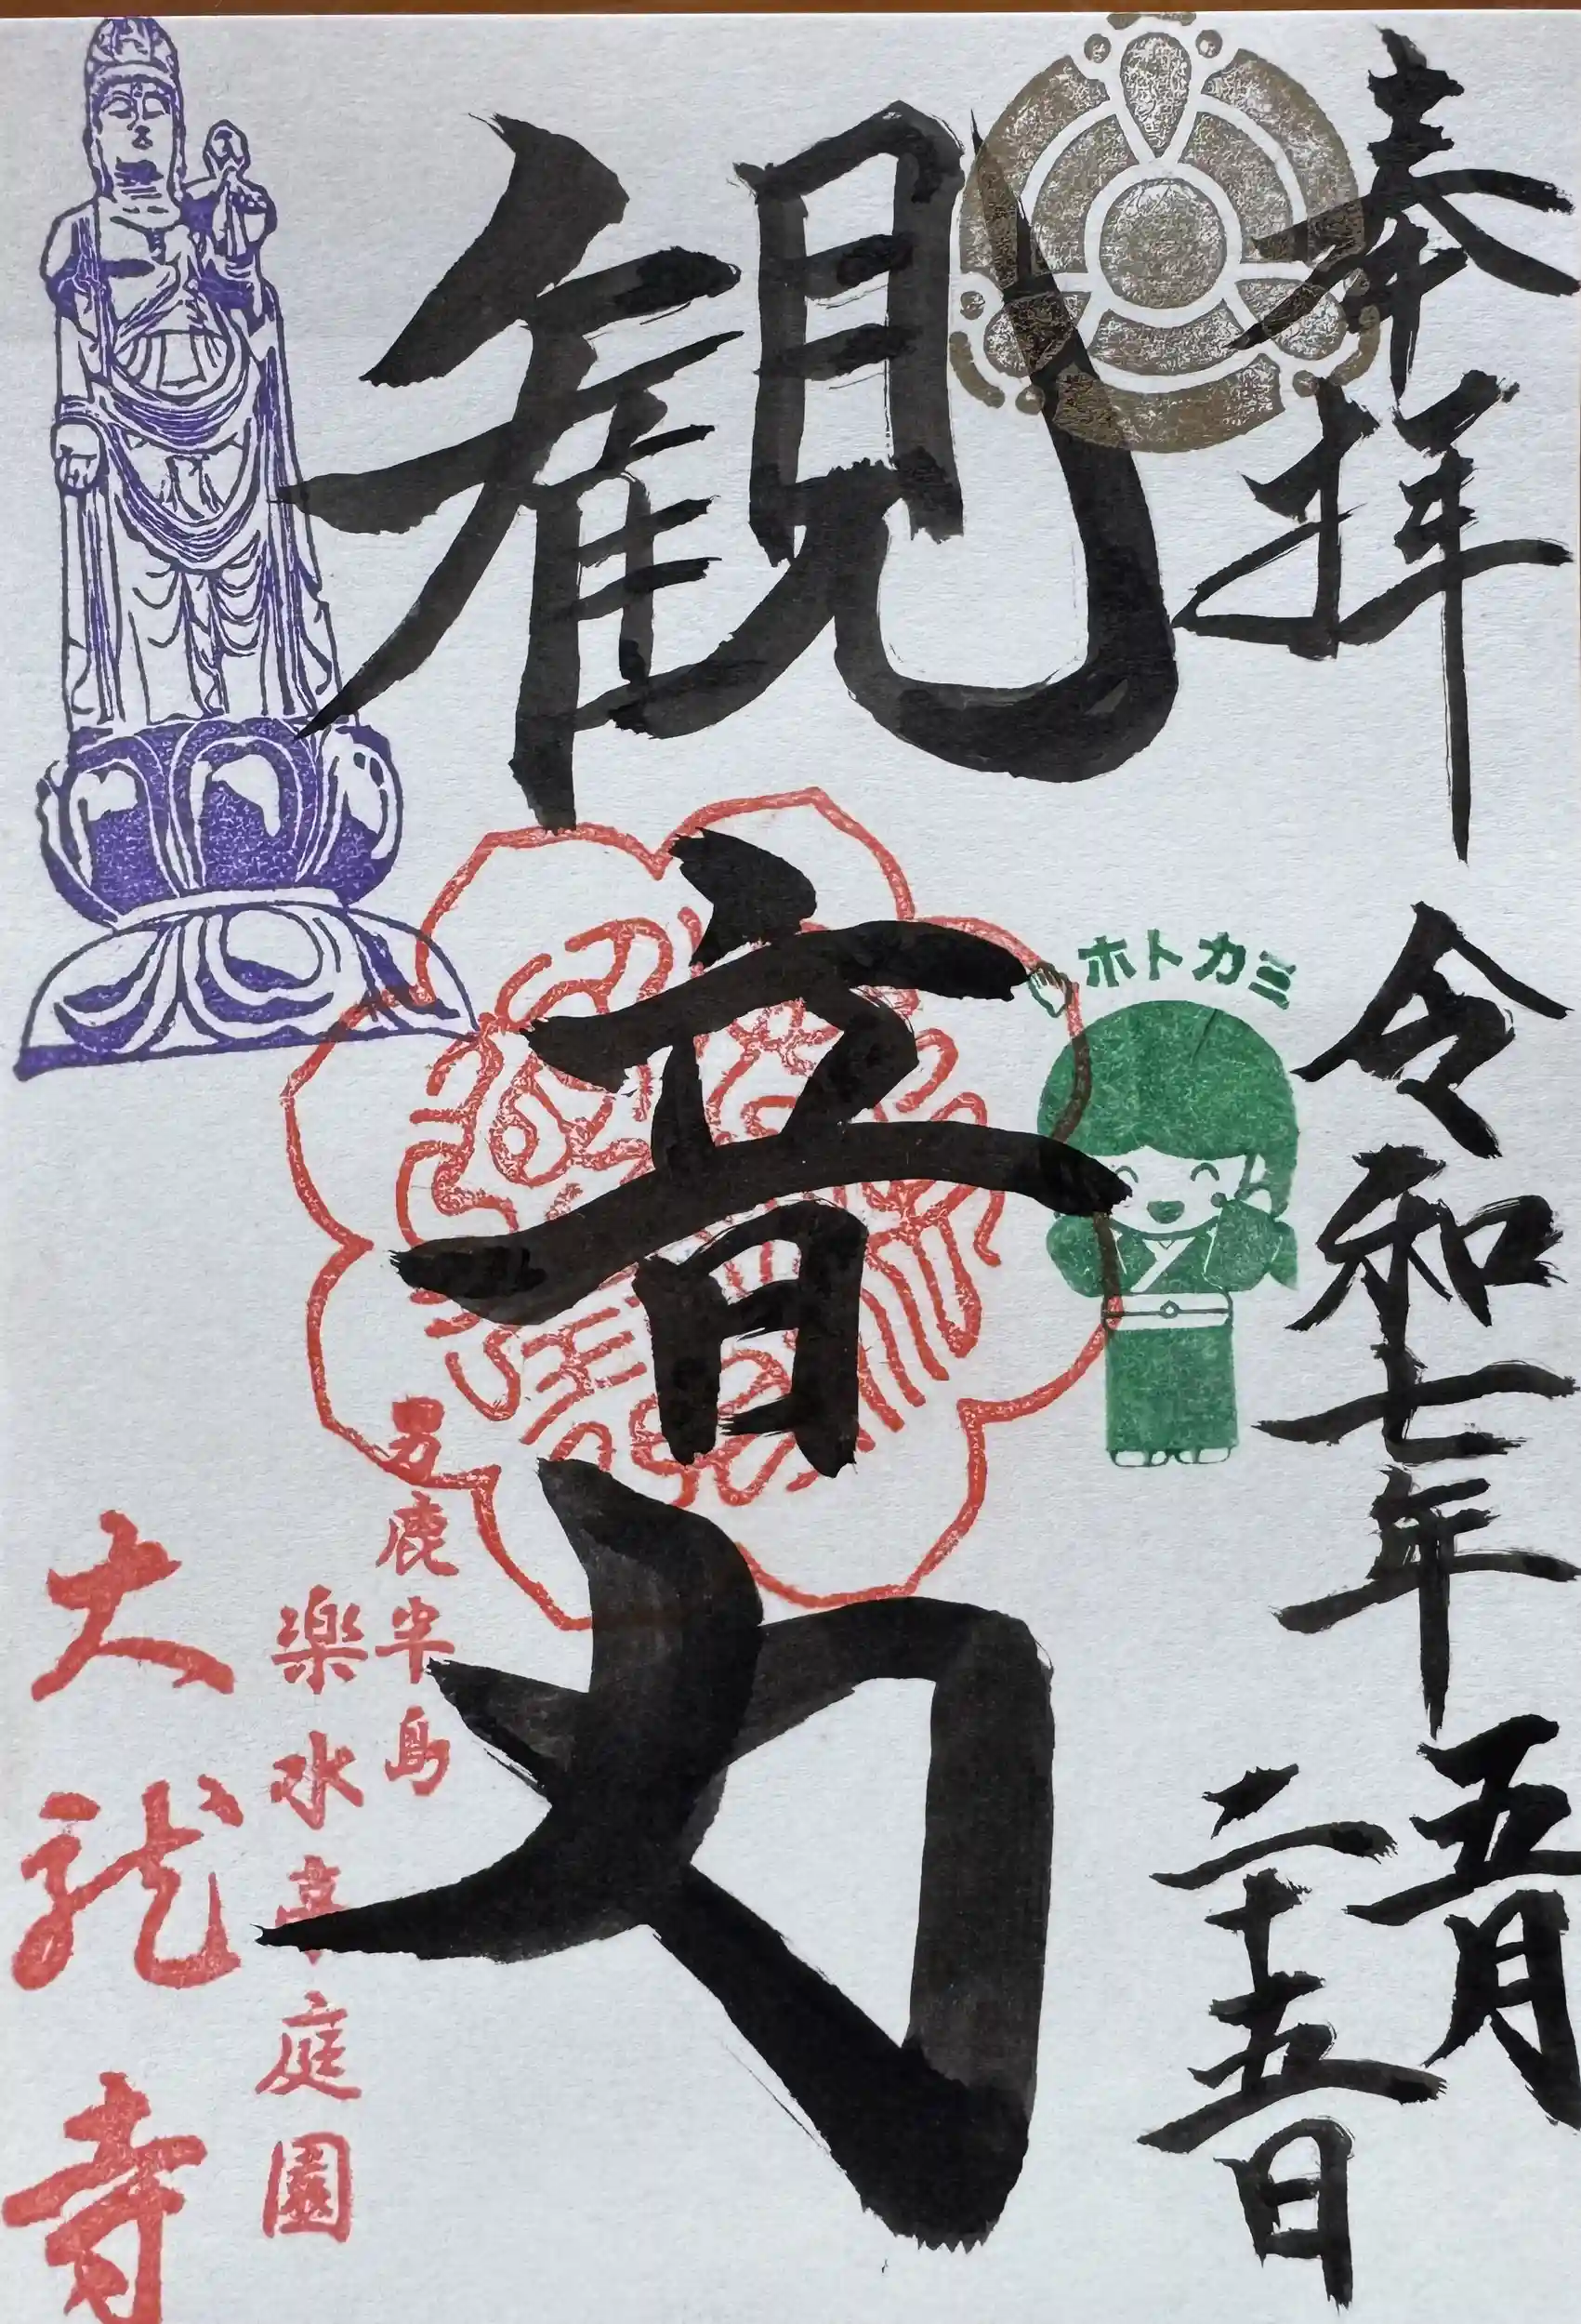 奉拝 令和七年 五月
二十五日
ホトカミ
観音力
男鹿半島
楽水亭庭園
大龍寺